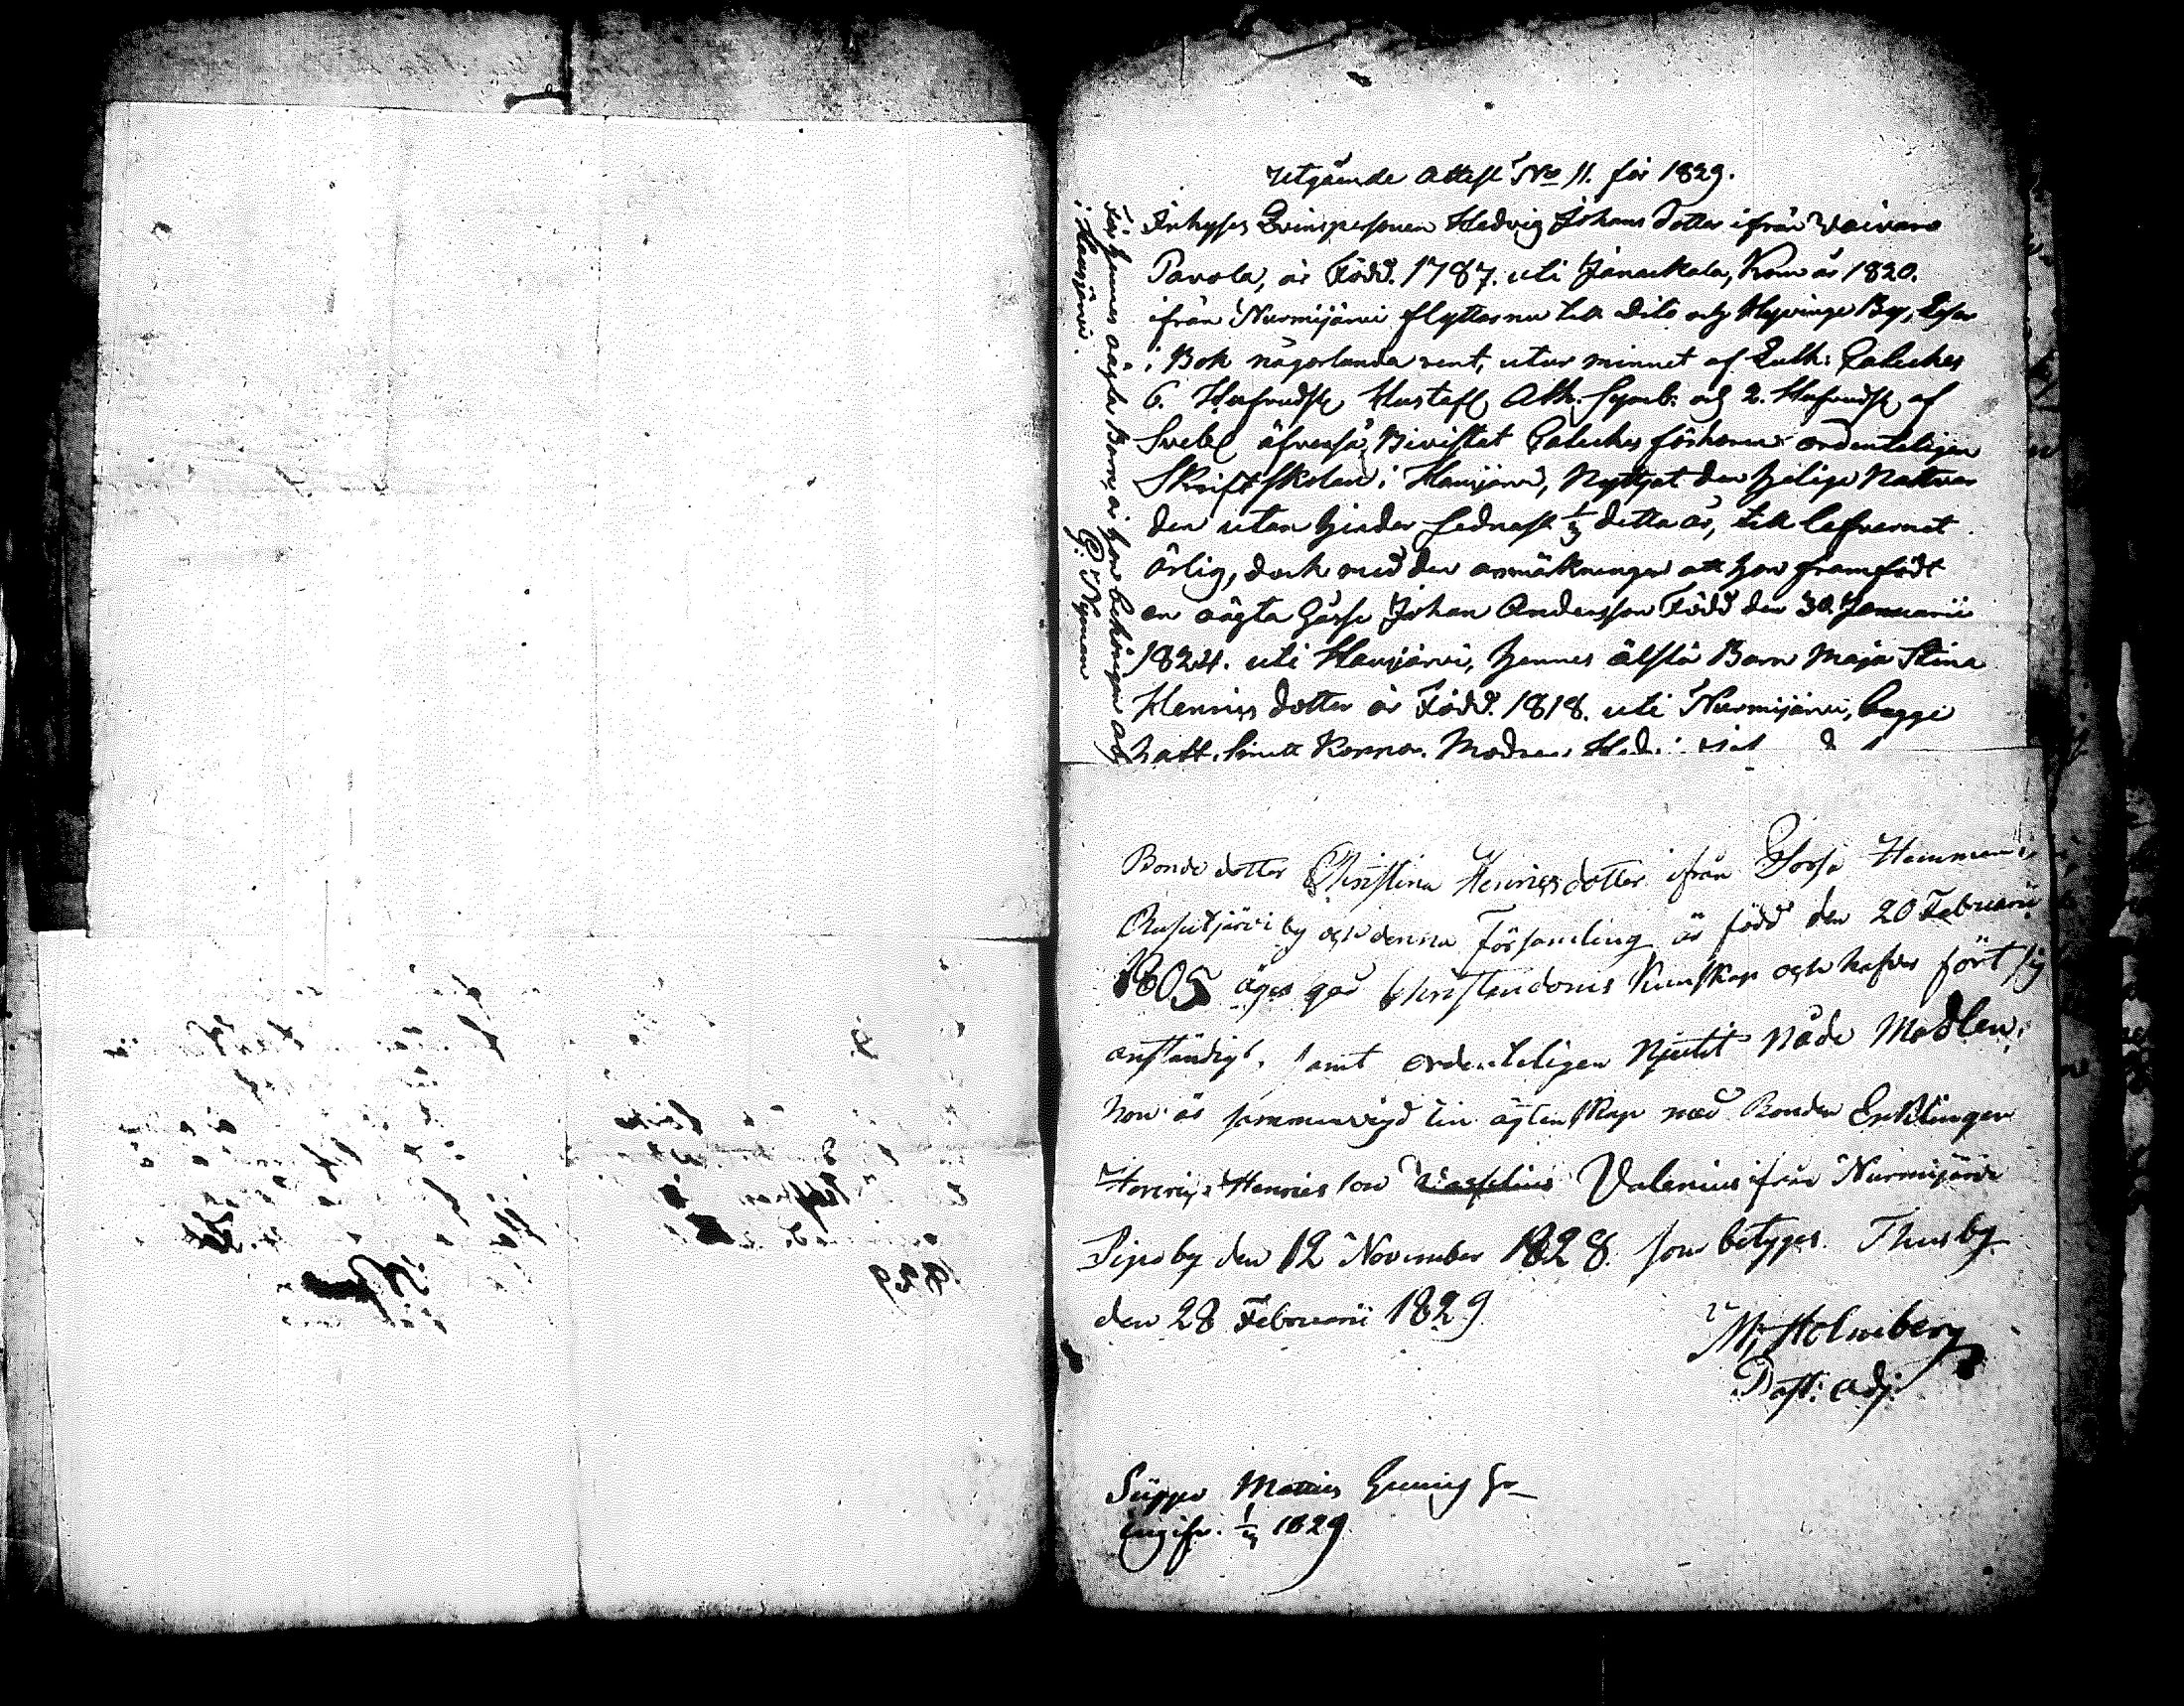 Utgående Attest No 11. för 1829.
Inhyses Qvinspersonen Hedvig Johans dotter ifrån Waivaro
Pavola, är Född. 1787. uti Janackala, Kom år 1820.
ifrån Nurmijärvi flyttar nu till dito och Hyvinge By, Läser
i Bok någorlunda rent, utur minnet af Luth: Cateches
6. Hufvudst Hustafl Ath. Symb. och 2. Hufvudst af
Sveb. äfvenså, Bivistat Catechesförhören ordenteligen
Skriftskolan i Hausjärvi, Nyttjat den helige Nattvar
den utan hinder sednast detta år, till lefvernet
ärlig, dock med den anmärkningen att hon framfödt
en oägta Gosse Johan Andersson Född den 30. Januarii
1824. uti Hausjärvi, hennes älsta Barn Maja Stina
Henrics dotter är Född. 1818. uti Nurmijärvi, bägge
haft. Smitt Koppor. Modren
För hennes oägta Barn, är hon behörigen
i Hausjärvi. G. Nyman
Bonde dotter Christina Henricsdotter ifrån Gossa Hemman i
Rusutjärvi by och denna Församling är född den 20 Februarii
1805 äger god Christendoms Kunskap och hafver fört sig
anständigt, samt ordenteligen Njutit Nåde Medlen.
hon är sammanvigd till ägtenskap med Bonden Enklingen
Henric Henrics son Valenius ifrån Nurmijärvi
by den 12 November 1828. som betygas. Thusby
den 28 Februarii 1829
M. Holmberg
Past: adj.
Seppo Mattis
1829
1829